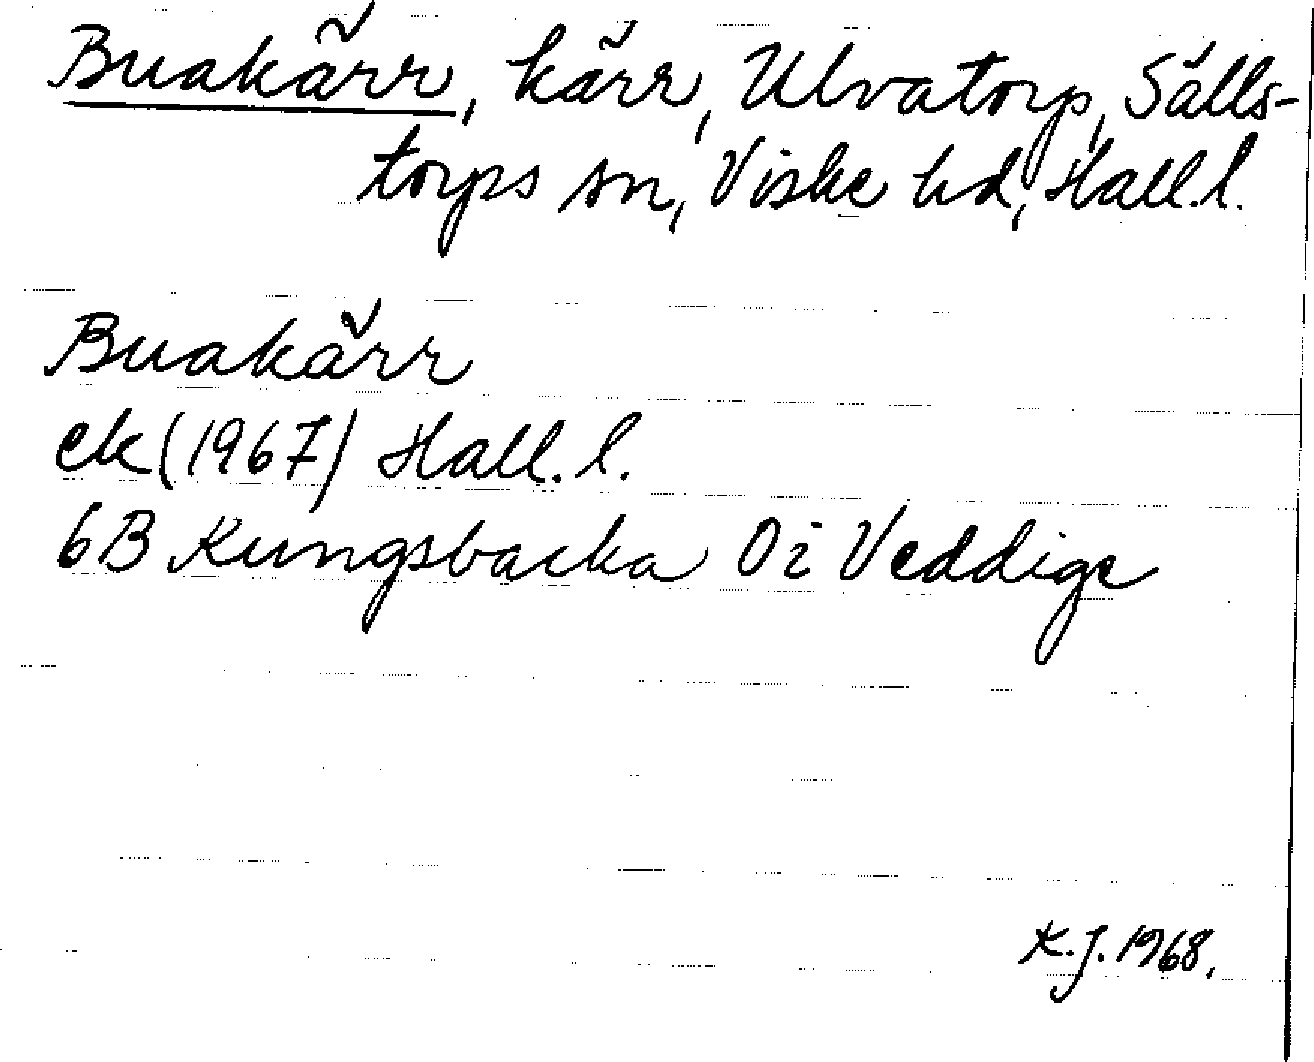 Buakärr, kärr, Ulvatorp, Sälls-
torps sn, Viske hd, Hall.l.
Buakärr
ek (1967) Hall.l.
6B Kungsbacka 0i Veddige
K.J. 1968.